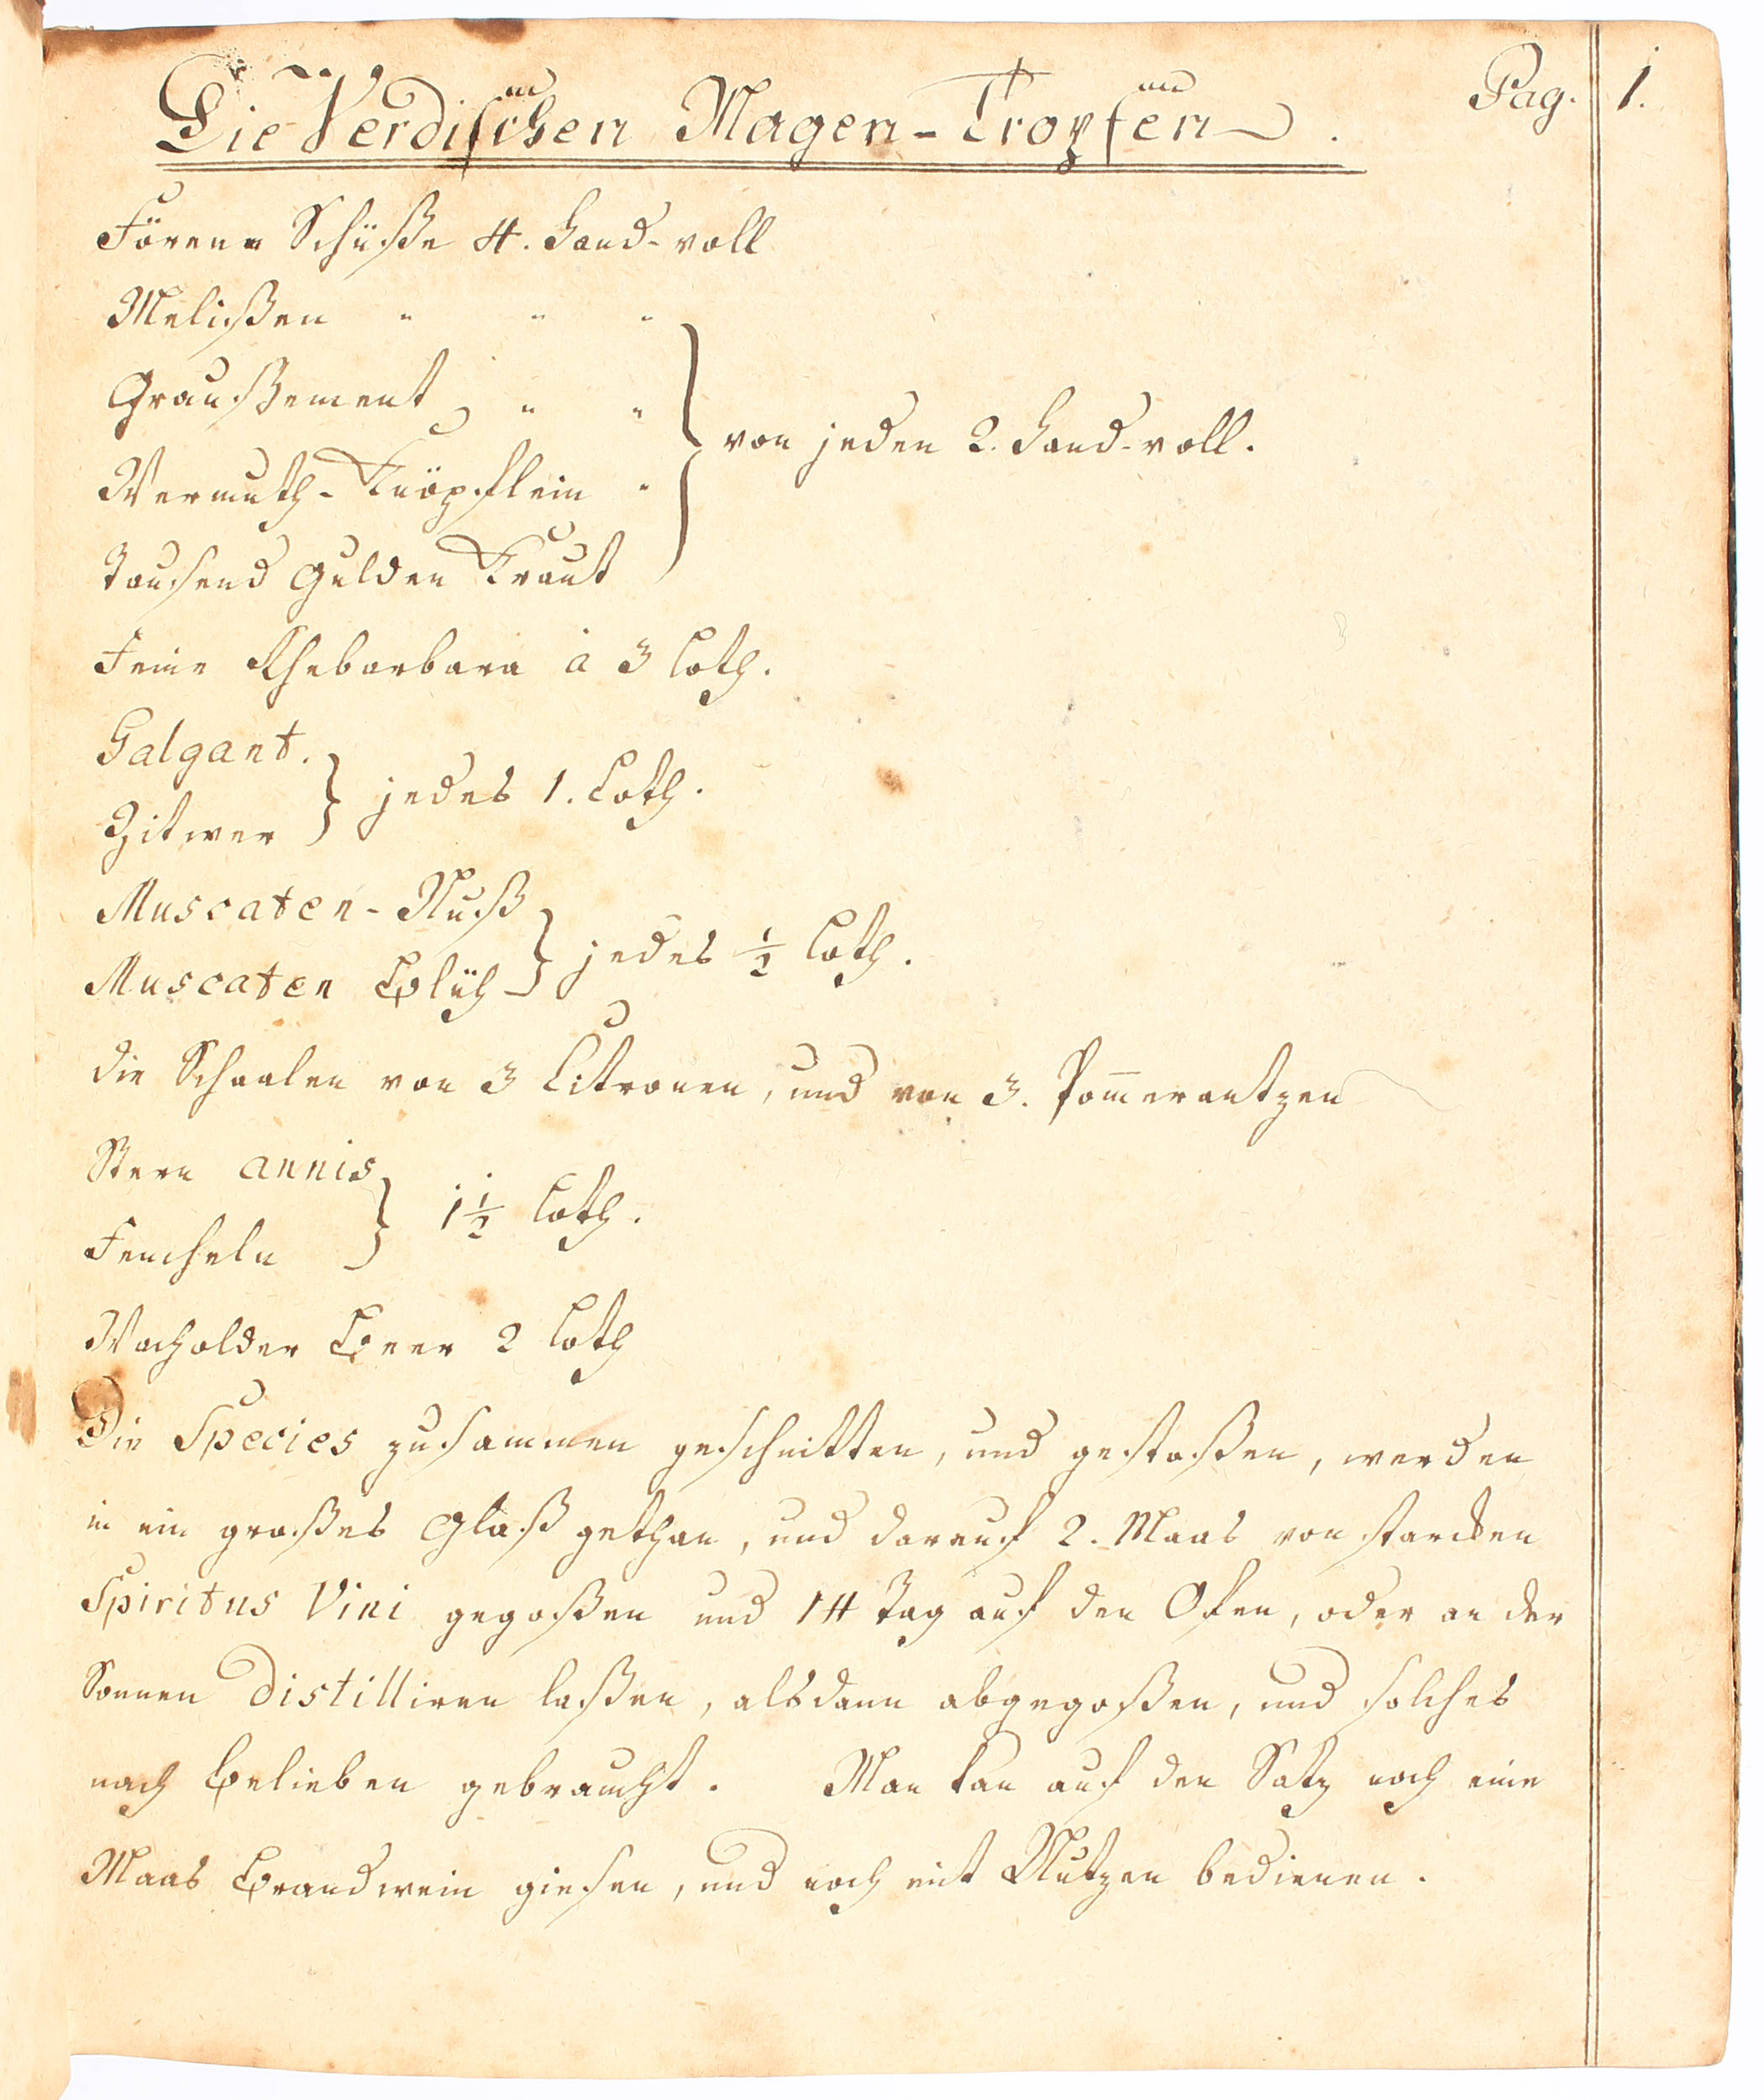 Pag. 1.
Die Verdischen Magen-Tropfen.
Förene Schüße 4. Hand-voll
Melißen " " "
Graußement, " "
Wermuth-Knöpflein "
Tausend Gulden Kraut
} von jeden 2. Hand-voll.
Feine Rhebarbara à 3 Loth.
Galgant.
Zitwer
} jedes 1. Loth.
Muscaten-Nuß
Muscaten Blüh
} jedes ½ Loth.
die Schaalen von 3 Citronen, und von 3. Pom̄erantzen
Stern annis
Fencheln
} 1½ Loth.
Wacholder Beer 2 Loth
Die Species zusammen geschnitten, und gestoßen, werden
in ein großes Glaß gethan, und darauf 2. Maas von starcken
Spiritus Vini gegoßen und 14 Tag auf den Ofen, oder an der
Sonnen distilliren laßen, alsdann abgegoßen, und solches
nach Belieben gebraucht. Man kan auf den Satz noch eine
Maas Brandwein giesen, und noch mit Nutzen bedienen.